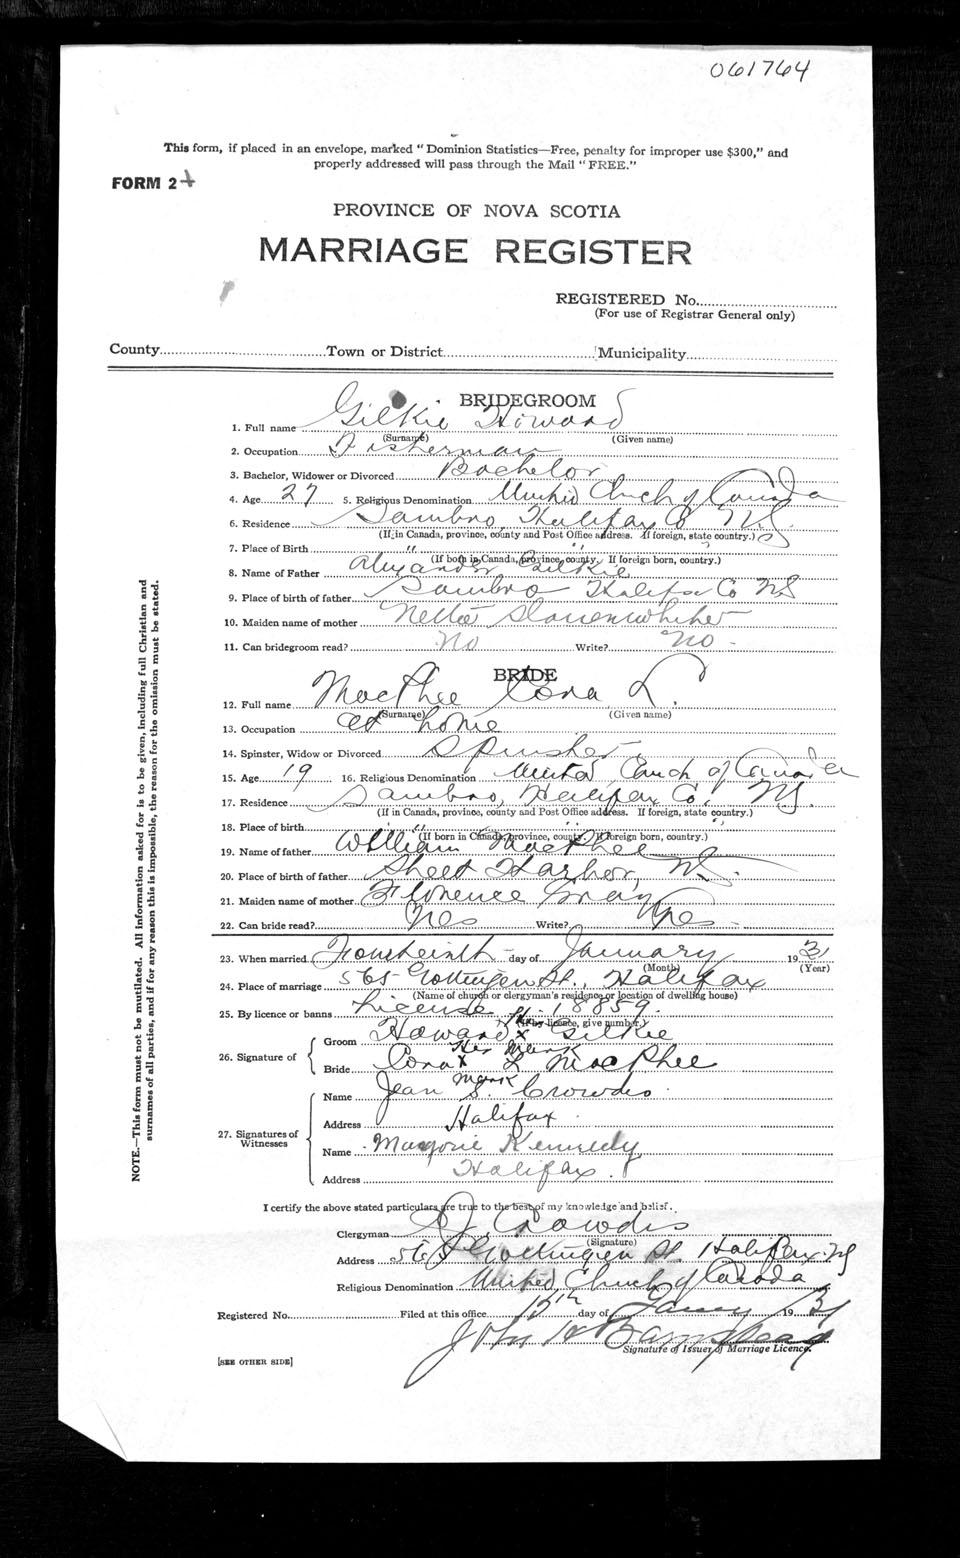 061764
This form, if placed in an envelope, marked "Dominion Statistics—Free, penalty for improper use $300," and
properly addressed will pass through the Mail "FREE."
FORM 2
PROVINCE OF NOVA SCOTIA
MARRIAGE REGISTER
REGISTERED No.
(For use of Registrar General only)
County Town or District Municipality
BRIDEGROOM
1. Full name Gilkie Howard
(Surname) (Given name)
2. Occupation Fisherman
3. Bachelor, Widower or Divorced Bachelor
4. Age 27 5. Religious Denomination United Church of Canada
6. Residence Sambro, Halifax Co NS.
(If in Canada, province, county and Post Office address. If foreign, state country.)
7. Place of Birth " " "
(If born in Canada, province, county. If foreign born, country.)
8. Name of Father Alexander Gilkie
9. Place of birth of father Sambro Halifax Co NS
10. Maiden name of mother Nettie Slauenwhite
11. Can bridegroom read? No Write? No
BRIDE
12. Full name MacPhee Cora L.
(Surname) (Given name)
13. Occupation at home
14. Spinster, Widow or Divorced Spinster
15. Age 19 16. Religious Denomination United Church of Canada
17. Residence Sambro, Halifax Co. NS.
(If in Canada, province, county and Post Office address. If foreign, state country.)
18. Place of birth " " "
(If born in Canada, province, county. If foreign born, country.)
19. Name of father William MacPhee
20. Place of birth of father Sheet Harbor, NS.
21. Maiden name of mother Florence Gray
22. Can bride read? Yes Write? Yes
23. When married Fourteenth day of January 1931
(Month) (Year)
24. Place of marriage 565 Gottingen St., Halifax
(Name of church or clergyman's residence or location of dwelling house)
25. By licence or banns License 18859.
(If by licence, give number.)
26. Signature of
Groom Howard x Gilkie
Her Mark
Bride Cora x L MacPhee
Mark
27. Signatures of Witnesses
Name Jean S. Crowdis
Address Halifax
Name Marjorie Kennedy
Address Halifax.
I certify the above stated particulars are true to the best of my knowledge and belief.
Clergyman Crowdis
(Signature)
Address 565 Gottingen St. Halifax NS
Religious Denomination United Church of Canada
Registered No. Filed at this office 15th day of 1931
John H Barnstead
Signature of Issuer of Marriage Licence.
[SEE OTHER SIDE]
NOTE.—This form must not be mutilated. All information asked for is to be given, including full Christian and
surnames of all parties, and if for any reason this is impossible, the reason for the omission must be stated.